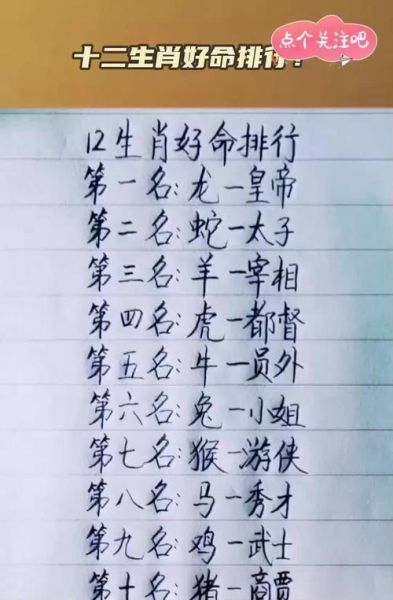 十二生肖好命排行！
点个关注吧
12生肖好命排行
第一名:龙一皇帝
第二名:蛇一太子
第三名:羊一宰相
第四名:虎一都督
第五名:牛一员外
第六名:兔一小姐
第七名:猴一游侠
第八名:马一秀才
第九名:鸡一武士
第十名:猪一商贾